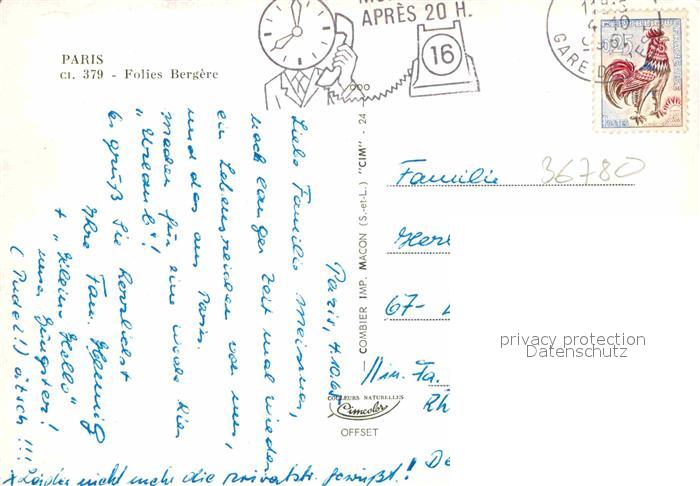 PARIS
Cl. 379 - Folies Bergère
APRÈS 20 H.
16
GARE D
25
Paris, 4.10.65
Liebe Familie Meissner,
nach langer Zeit mal wieder
ein Lebenszeichen von uns,
und das aus Paris.
Machen für eine Woche hier
"Urlaub"!
Es grüßt Sie herzlichst
Ihre Fam. Hennig
+ "kleine Hello"
unser Jüngster!
(Pudel!) ätsch!!!
x Leider nicht mehr die Privatstr. gewußt!
COMBIER IMP. MACON (S.-et-L.) "CIM" - 24
COULEURS NATURELLES
Cimcolor
OFFSET
Familie
36780
Herr
67-
Fa.
Rh
De
privacy protection
Datenschutz